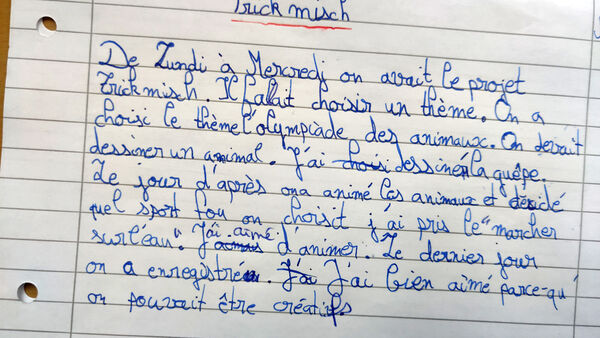 Trick misch
De Lundi à Mercredi on avait le projet
trickmisch. Il fallait choisir un thème. On a
choisi le thème l'olympiàde des animaux. On devait
dessiner un animal. J'ai choisi dessiné la guêpe.
Le jour d'après on a animé les animaux et décidé
quel sport fou on choisit j'ai pris le "marcher
sur l'eau". J'ai aimé d'animer. Le dernier jour
on a enregistré. J'ai J'ai bien aimé parce-qu'
on pouvait être créatifs